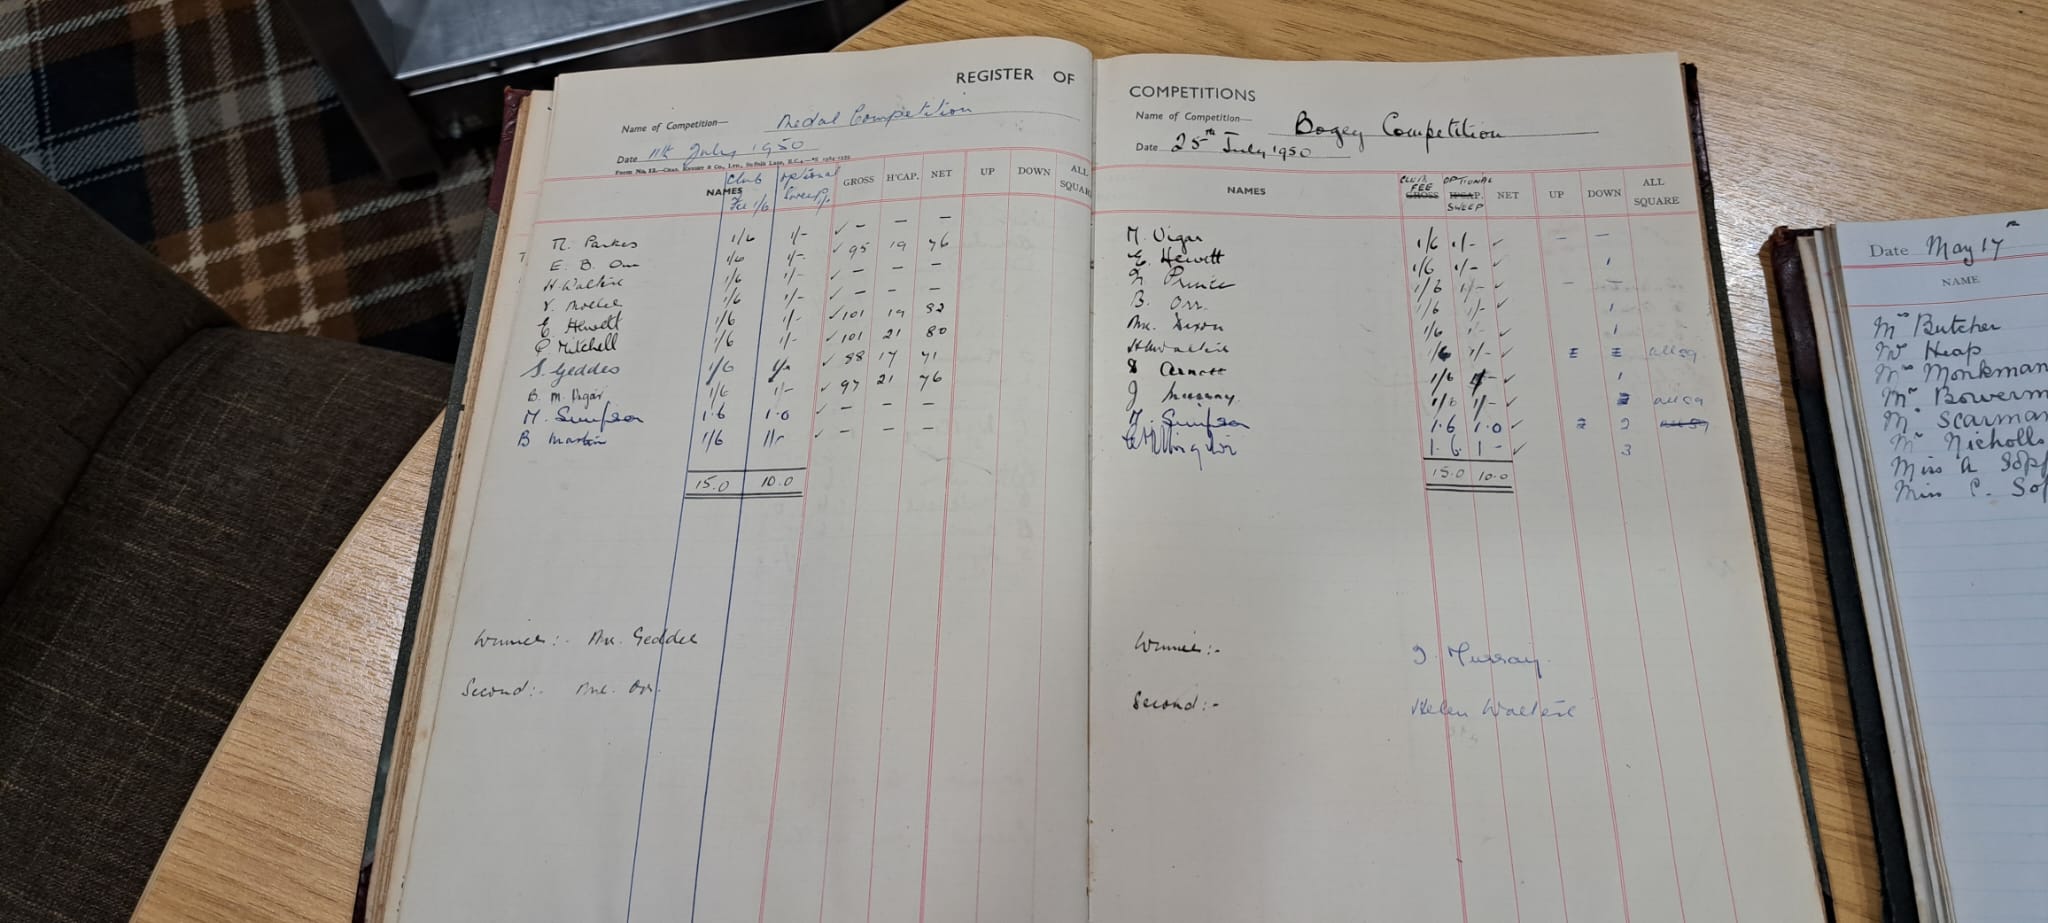 REGISTER OF
Name of Competition— Medal Competition
Date 11th July 1950
NAMES Club Fee 1/6 optional Sweep 1/- GROSS H'CAP. NET UP DOWN ALL SQUARE
M. Parkes 1/6 1/- ✓ – – –
E. B. Orr 1/6 1/- ✓ 95 19 76
H. Walters 1/6 1/- ✓ – – –
1/6 1/- ✓ – – –
E Hewett 1/6 1/- ✓ 101 19 82
P Mitchell 1/6 1/- ✓ 101 21 80
S. Geddes 1/6 ✓ 88 17 71
B. M. Vigar 1/6 1/- ✓ 97 21 76
M. Simpson 1.6 1.0 ✓ – – –
B Martin 1/6 ✓ – – –
15.0 10.0
Winner:- Mrs. Geddes
Second:- Mrs. Orr.
COMPETITIONS
Name of Competition— Bogey Competition
Date 25th July 1950
NAMES CLUB FEE GROSS OPTIONAL H'CAP. SWEEP NET UP DOWN ALL SQUARE
M. Vigar 1/6 1/- ✓ – –
E. Hewett 1/6 1/- ✓ 1
Prince 1/6 1/- ✓ – –
B. Orr. 1/6 1/- ✓ 1
Mrs. Dixon 1/6 1/- ✓ 1
H Walters 1/6 1/- ✓ = = all sq
1/6 ✓ 1
J Murray. 1/6 1/- ✓ all sq
M. Simpson 1.6 1.0 ✓ 2
1.6. 1 – ✓ 3
15.0 10.0
Winner:- J. Murray.
Second:- Helen Walters
Date May 17th
NAME
Mrs Butcher
Mrs Heap
Mrs Monkman
Mrs Bowerm
Mrs Scarman
Mrs Nicholls
Miss A Sopp
Miss C. Sop